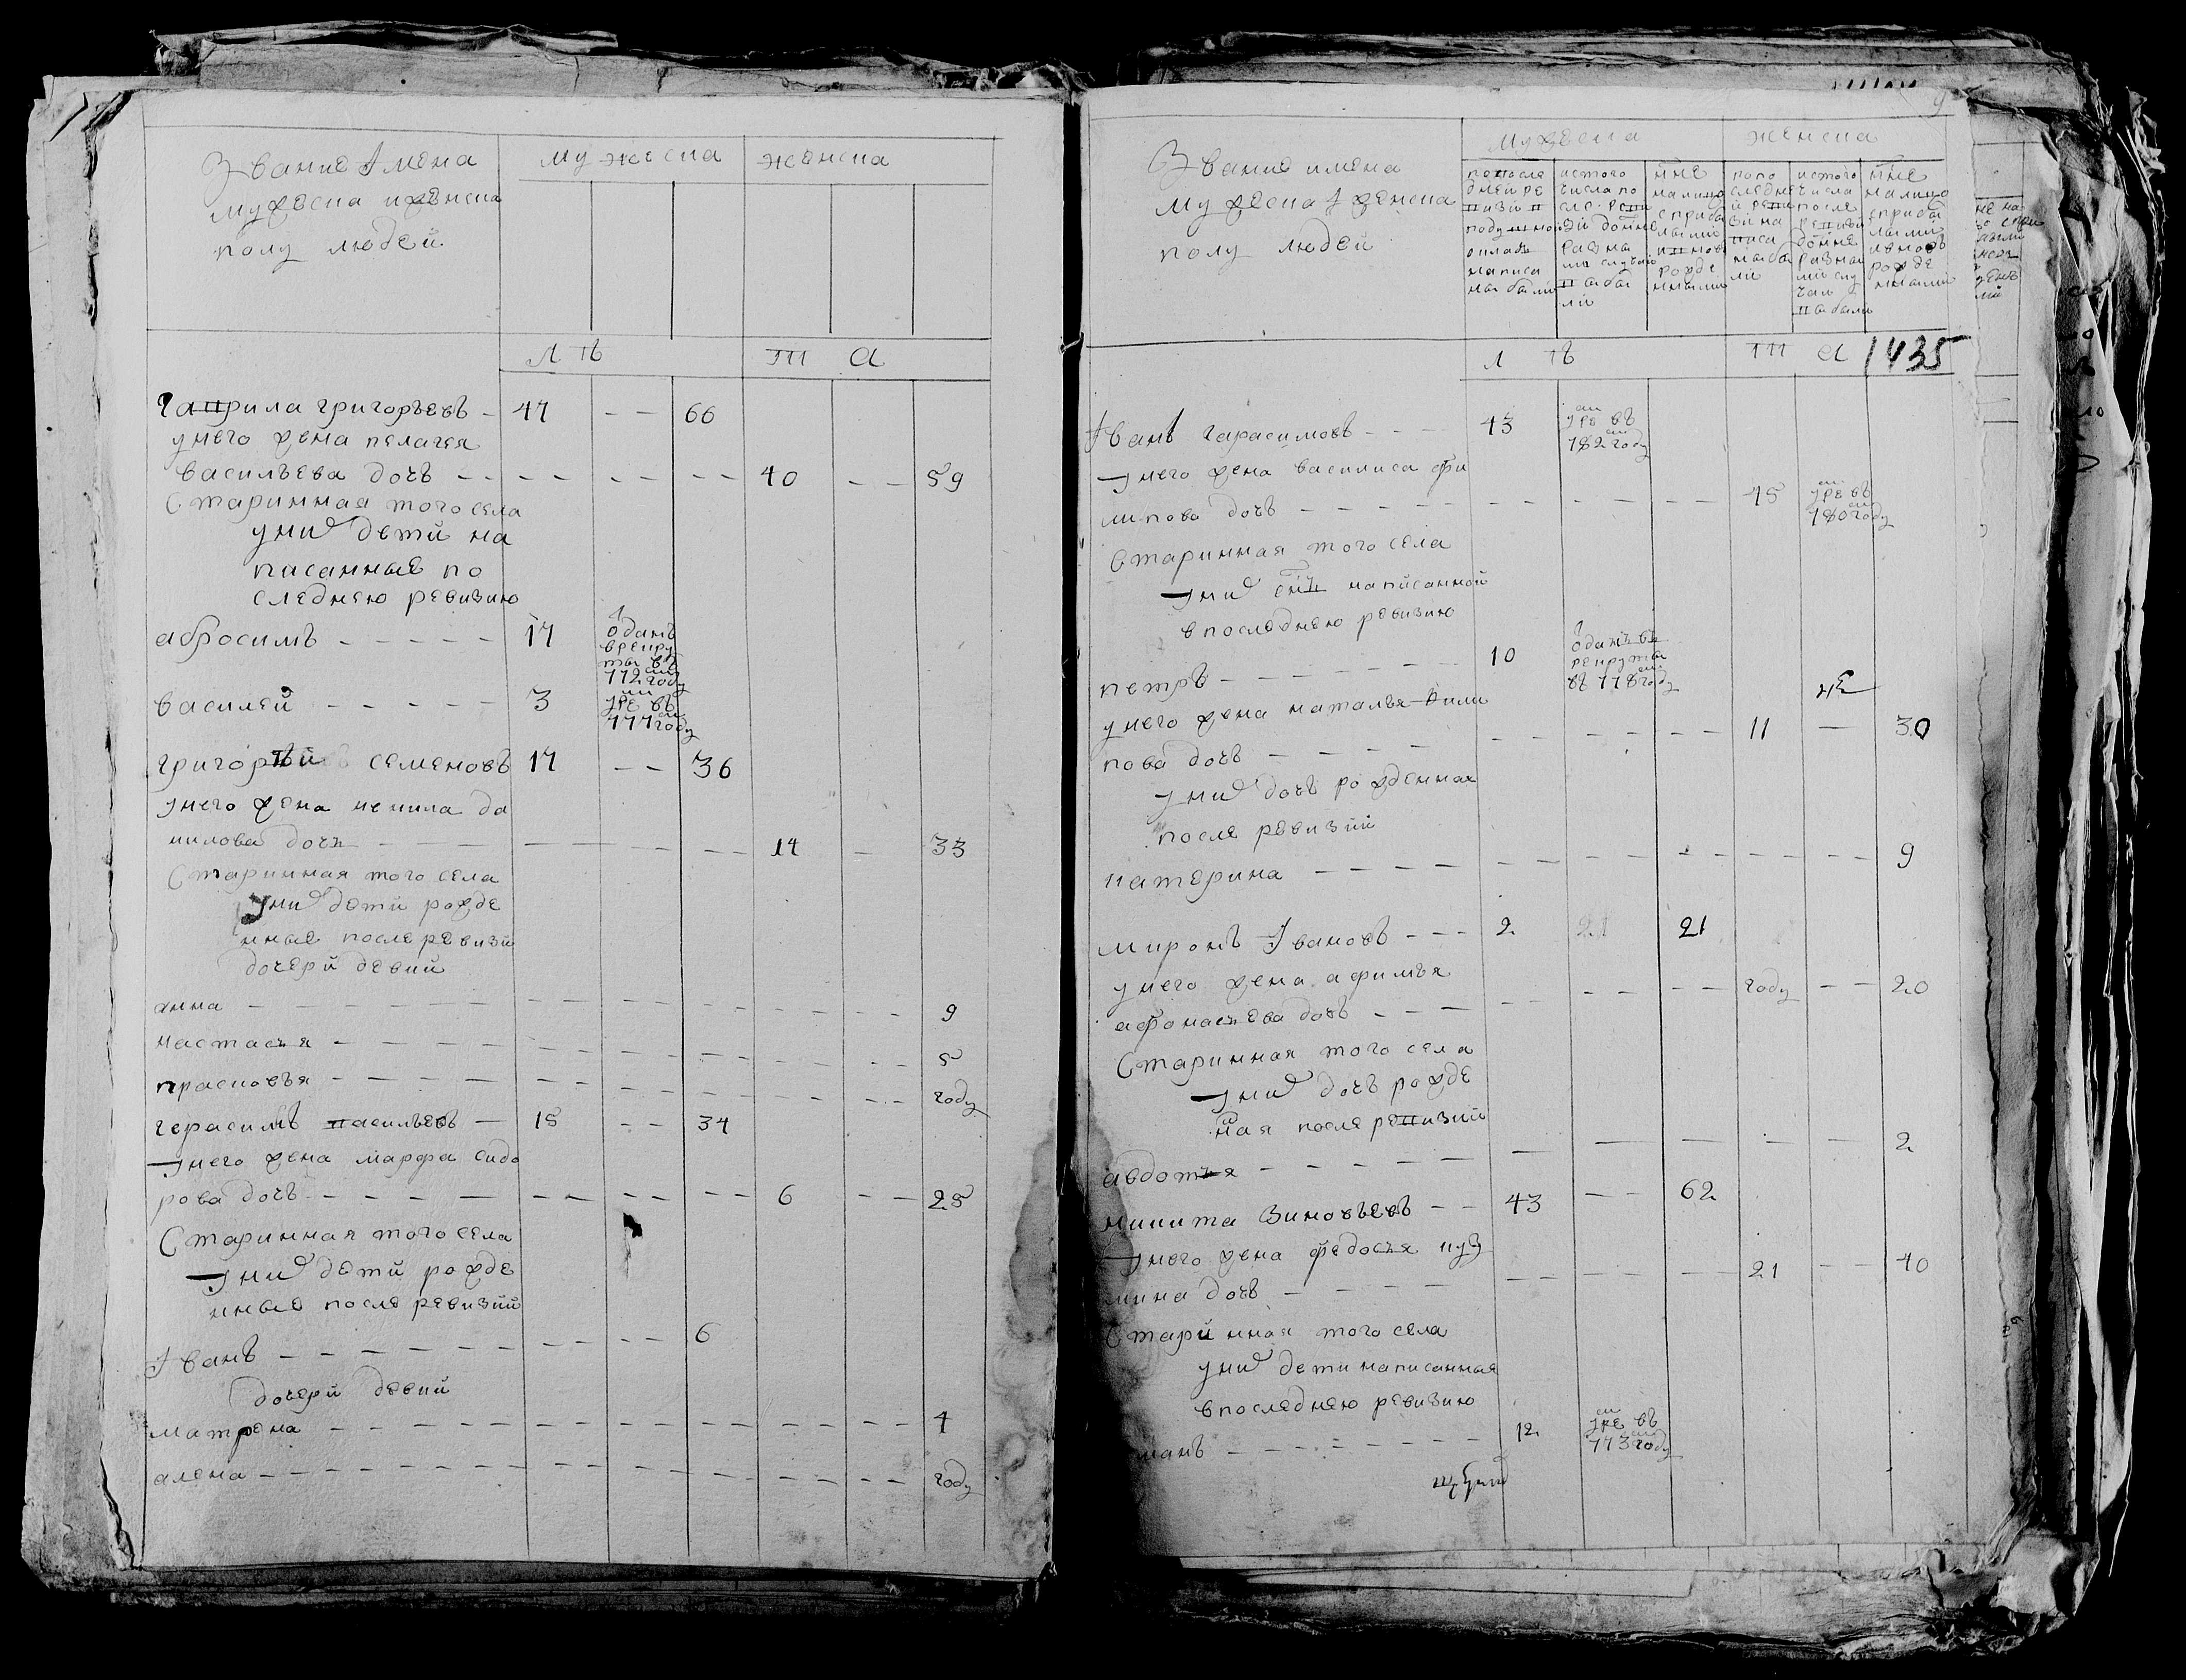 Звание Імена
мужеска иженска
полу людей
мужеска
женска
лѣ
та
гаврила григорьевъ - 47 - - 66
унего жена пелагея
васильева дочь - - 40 - - 59
Старинная того села
уних детй на
писанные по
следнею ревизию
абросимъ - - - - - 17
одатъ
врекру
ты въ
772м году
василей - - - - - 3
умре въ
777м году
григорѣй семеновъ 17 - - 36
унего жена ненила да
нилова дочь - - - 14 - 33
Старинная того села
уних детй рожде
нные после ревизи
дочерй девки
анна - - - 9
настасья - - - 5
прасковья - - - году
герасимъ васильевъ - 15 - - 34
унего жена марфа сидо
рова дочь - - - 6 - - 25
Старинная того села
уних детй рожде
нные после ревизий
Іванъ - - - 6
дочерй девки
матрена - - - 4
алена - - - году
Звание имена
мужеска Іженска
полу людей
мужеска
женска
попосле
дней ре
визи в
подушной
окладъ
написа
ны были
истого
числа по
сле реви
зй домне
разны
ми случаи
выбы
ли
нне
малицо
сприбы
лыми
ивновь
рожде
нными
попо
следне
й реви
зй на
писа
ны бы
ли
истого
числа
после
ревизй
домне
разны
ми слу
чаи
выбыли
нне
малицо
сприбы
лыми
ивновь
рожде
нными
лѣ
та
1435
Іванъ гарасимовъ - - - 43
умре въ
782м году
унего жена василиса фи
липова дочь - - - 45
умре въ
780м году
Старинная того села
уних снъ написанной
впоследнею ревизию
петръ - - - 10
одатъ въ
рекруты
въ 778м году
унего жена наталья фили
пова дочь - - - 11 - 30
уних дочь рожденная
после ревизий
катерина - - - 9
миронъ Івановъ - - - 2 21 21
унего жена афимья
афонасьева дочь - - - году - - 20
Старинная того села
уних дочь рожде
ная после ревизий
авдотья - - - 2
никита Зиновьевъ - - 43 - - 62
унего жена федосья куз
мина дочь - - - 21 - - 40
Старинная того села
уних дети написанные
впоследнею ревизию
12
умре въ
773м году